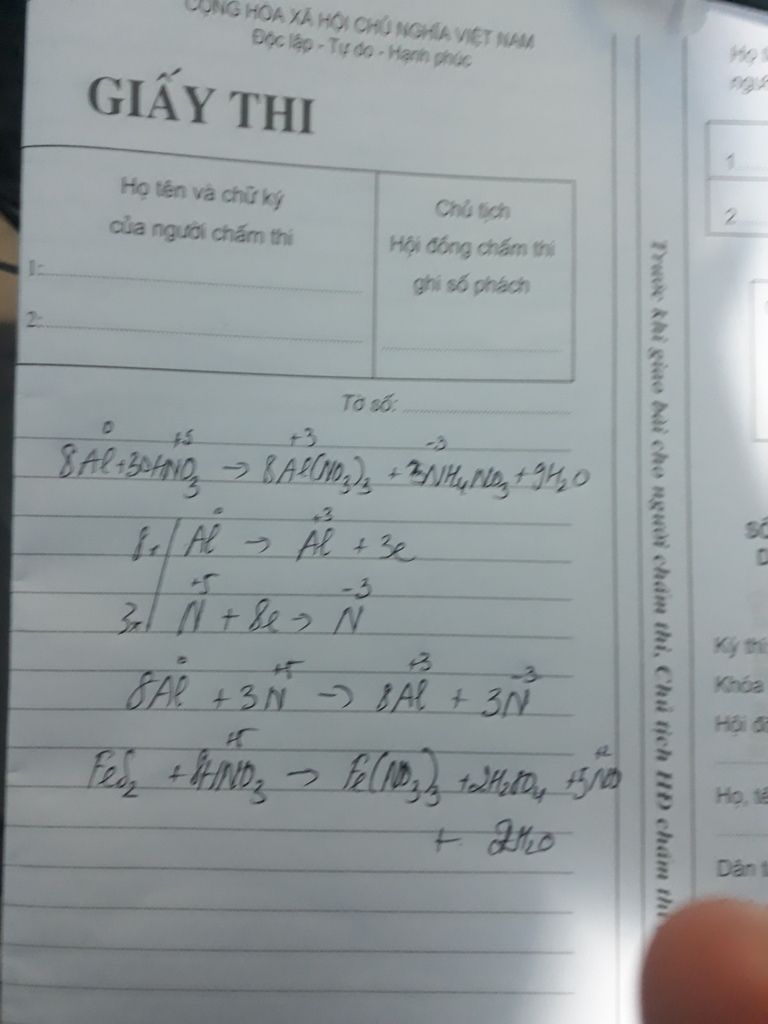 CỘNG HÒA XÃ HỘI CHỦ NGHĨA VIỆT NAM
Độc lập - Tự do - Hạnh phúc
GIẤY THI
Họ tên và chữ ký
của người chấm thi
1:
2:
Chủ tịch
Hội đồng chấm thi
ghi số phách
Tờ số:
0 +5 +3 -3
8Al + 30HNO3 → 8Al(NO3)3 + 3NH4NO3 + 9H2O
0 +3
8x | Al → Al + 3e
+5 -3
3x | N + 8e → N
0 +5 +3 -3
8Al + 3N → 8Al + 3N
+5 +2
FeS2 + 8HNO3 → Fe(NO3)3 + 2H2SO4 + 5NO
+ 2H2O
Trước khi giao bài cho người chấm thi, Chủ tịch HĐ chấm thi
1
2
Kỳ thi
Khóa
Hội đ
Họ, tê
Dân t